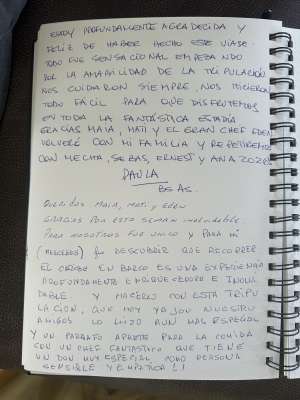 ESTOY PROFUNDAMENTE AGRADECIDA Y
FELIZ DE HABER HECHO ESTE VIAJE.
TODO FUE SENSACIONAL EMPEZANDO
POR LA AMABILIDAD DE LA TRIPULACIÓN
NOS CUIDARON SIEMPRE, NOS HICIERON
TODO FÁCIL PARA QUE DISFRUTEMOS
EN TODA LA FANTÁSTICA ESTADÍA
GRACIAS MAIA, MATI Y EL GRAN CHEF EDEN
VOLVERÉ CON MI FAMILIA Y REPETIREMOS
CON MECHA, SEBAS, ERNEST Y ANA
PAULA
BS AS.
Queridos Maia, Mati y Eden
GRACIAS POR ESTA SEMANA inolvidable.
PARA NOSOTROS FUE UNICO y PARA MI
(MERCEDES) fue DESCUBRIR QUE RECORRER
EL CARIBE EN BARCO ES UNA EXPERIENCIA
PROFUNDAMENTE ENRIQUECEDORA E INOLVI
DABLE Y HACERLO CON ESTA TRIPU
LACION, QUE HOY YA SON NUESTROS
AMIGOS LO HIZO AUN MAS ESPECIAL
Y UN PARRAFO APARTE PARA LA COMIDA
CON UN CHEF FANTASTICO QUE TIENE
UN DON MUY ESPECIAL COMO PERSONA
SENSIBLE Y EMPATICA !!